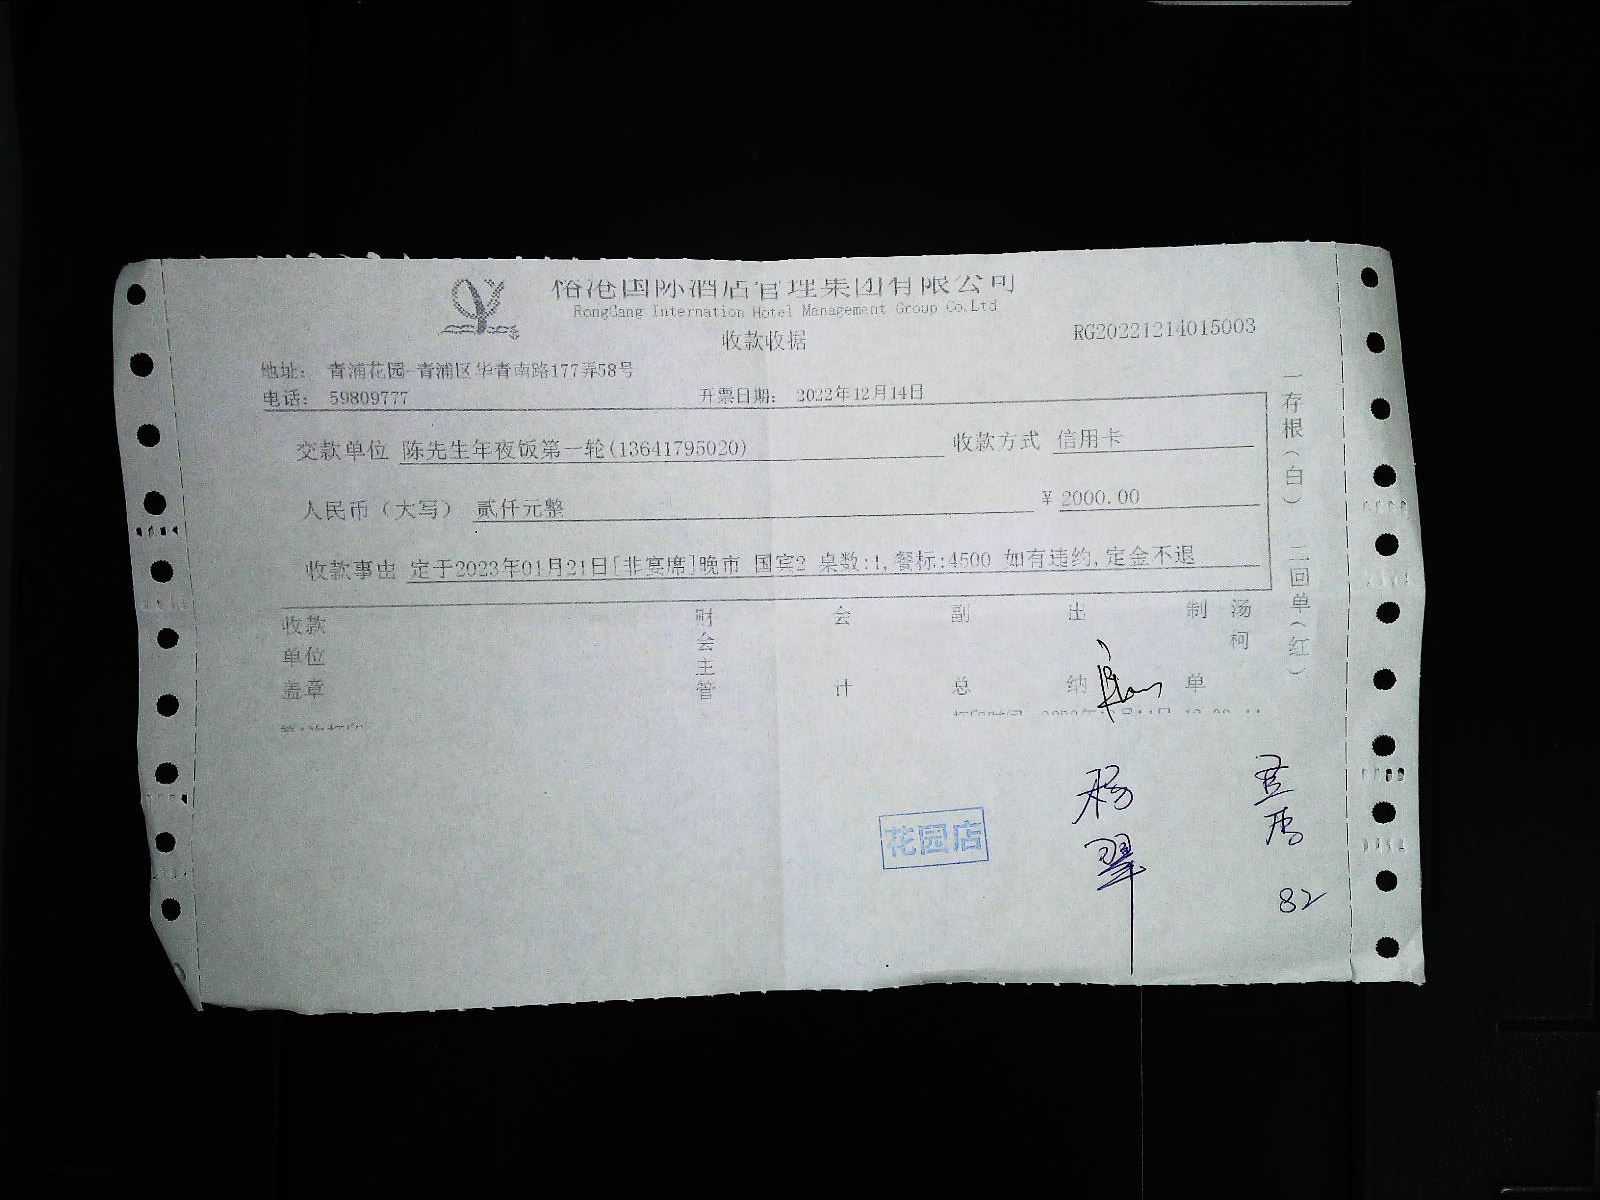 俗港国际酒店管理集团有限公司
RongGang Internation Hotel Management Group Co.Ltd
收款收据
RG20221214015003
地址: 青浦花园-青浦区华青南路177弄58号
电话: 59809777 开票日期: 2022年12月14日
交款单位 陈先生年夜饭第一轮(13641795020) 收款方式 信用卡
人民币(大写) 贰仟元整 ¥ 2000.00
收款事由 定于2023年01月21日[非宴席]晚市 国宾2 桌数:1,餐标:4500 如有违约,定金不退
收款单位盖章 财会主管 会计 副总 出纳 制单 汤柯
一存根(白) 二回单(红)
第1次打印
打印时间
花园店
杨翠
82